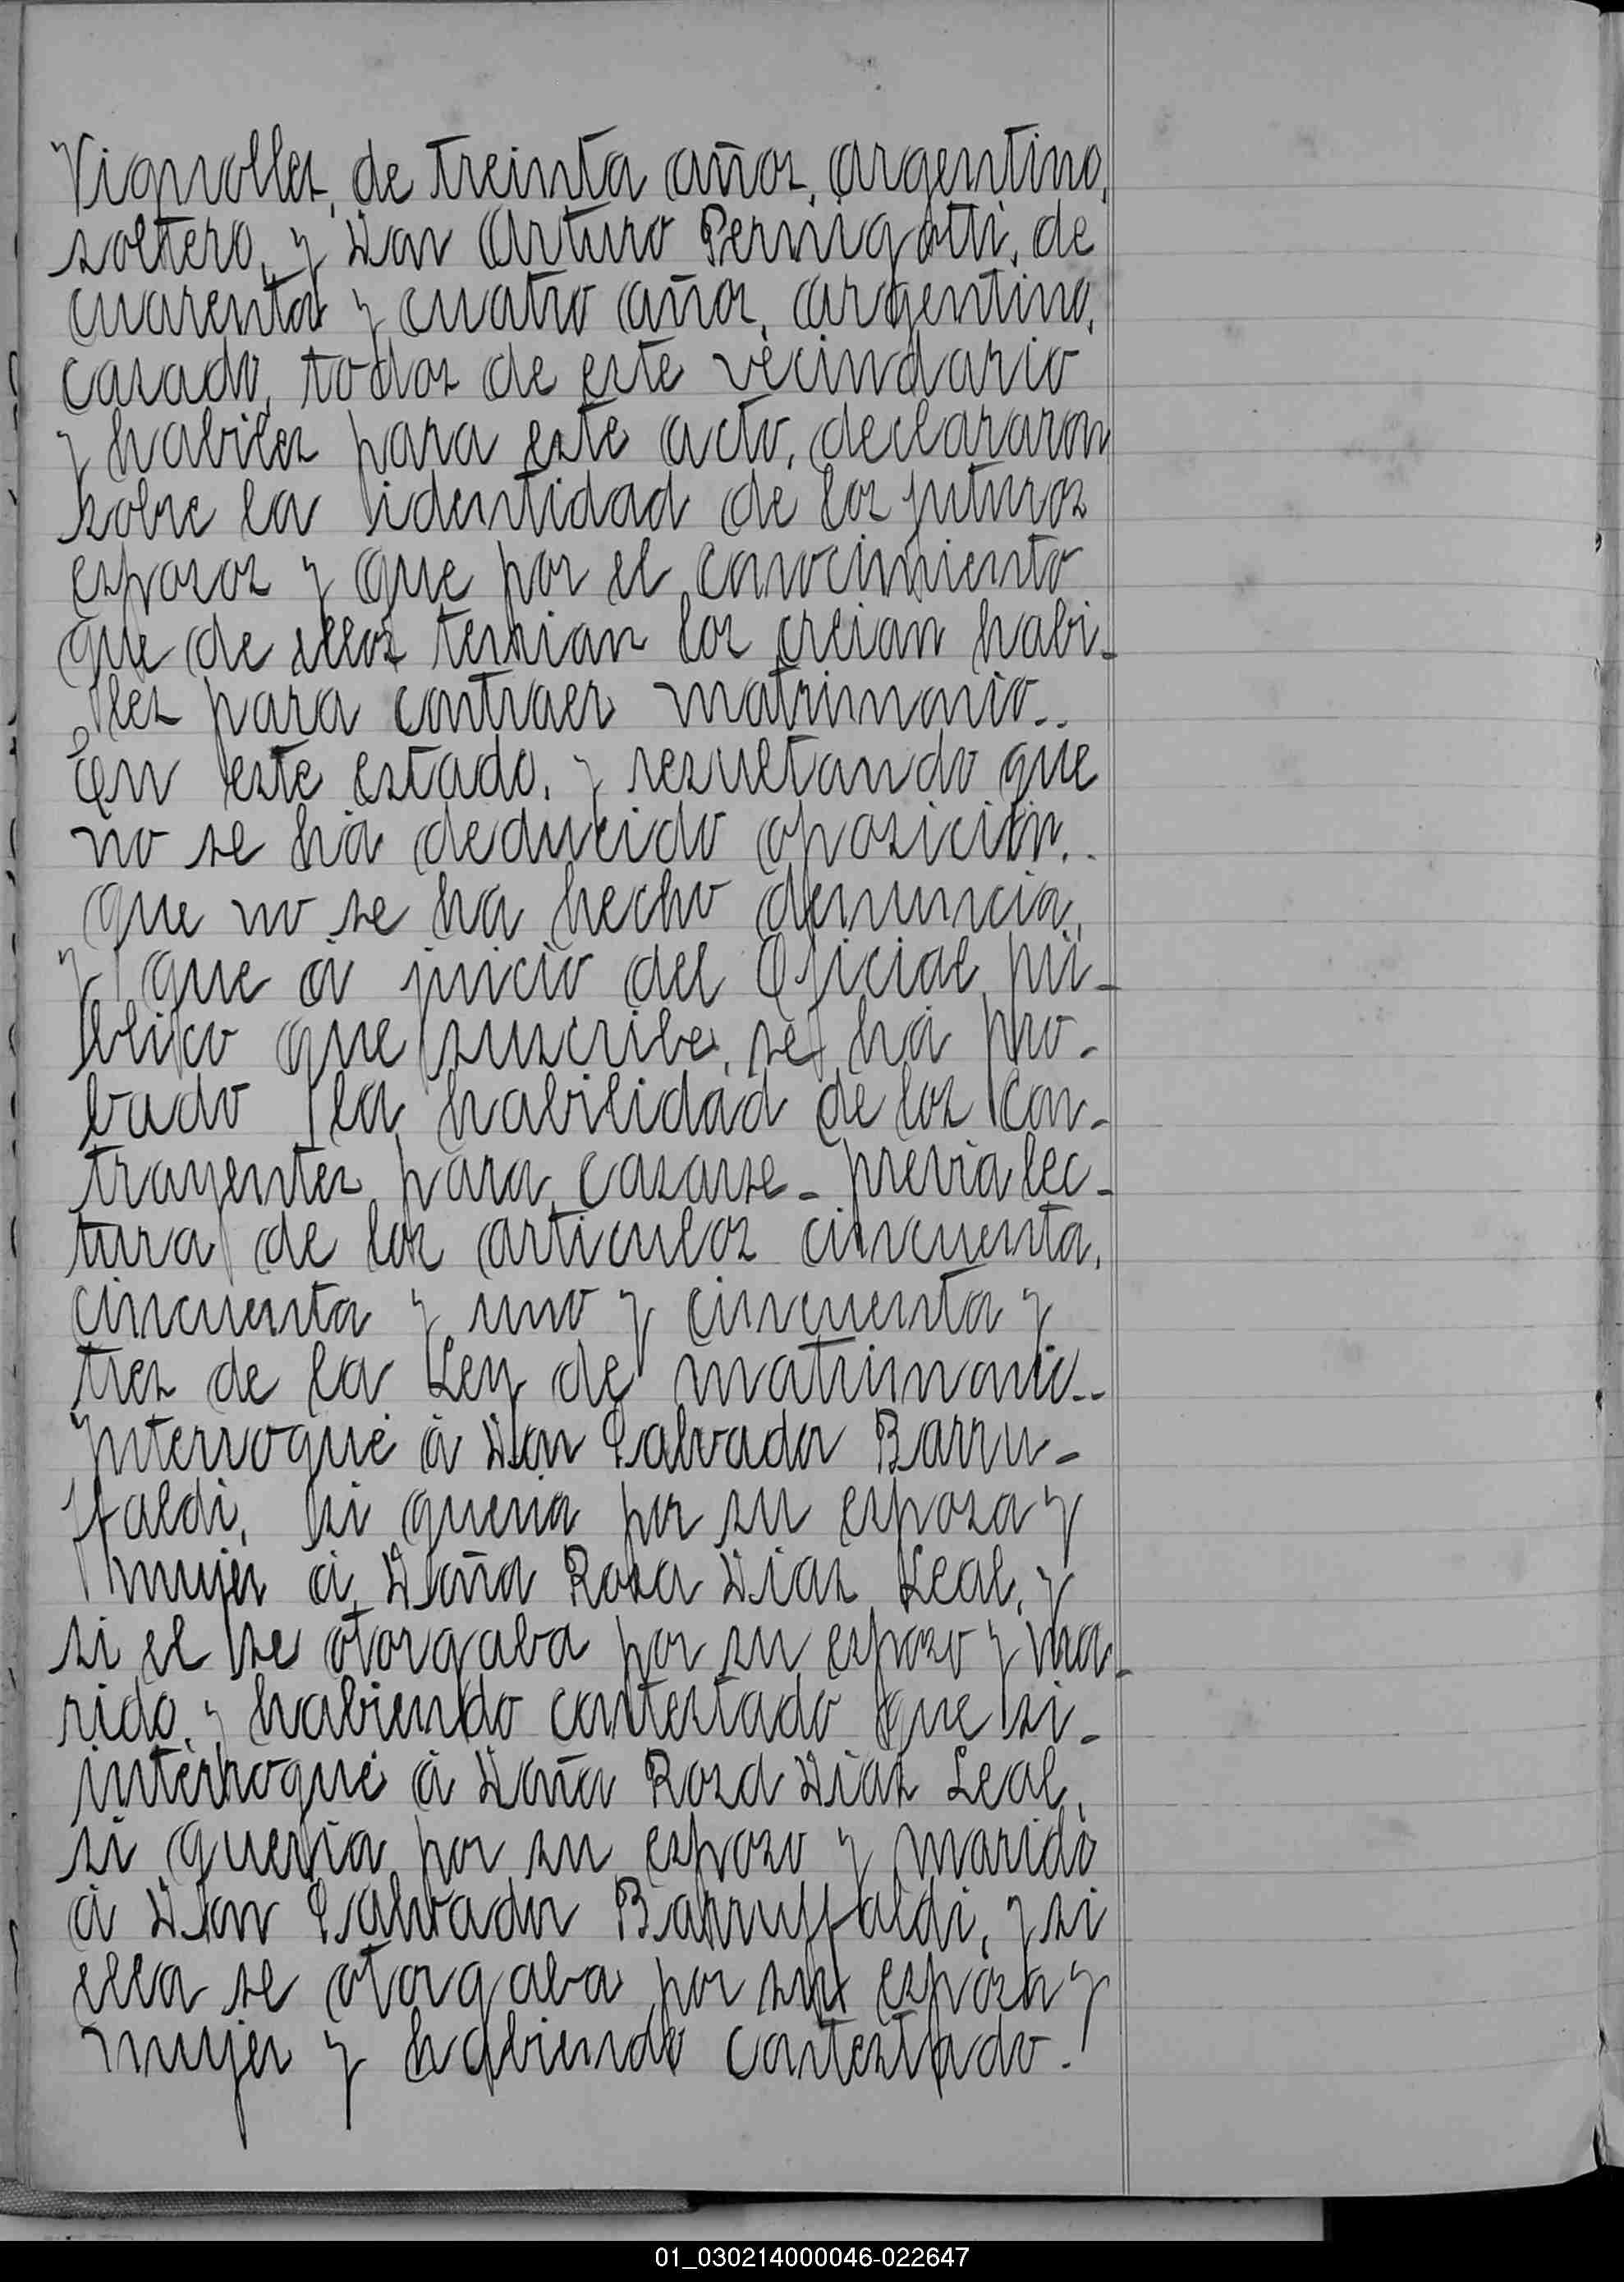 Vignolles, de treinta años, argentino,
soltero, y Don Arturo Pernigotti, de
cuarenta y cuatro años, argentino,
casado, todos de este vecindario
y habiles para este acto, declararon
sobre la identidad de los futuros
esposos y que por el conocimiento
que de ellos tenian los creian habi-
les para contraer matrimonio..
En este estado, y resultando que
no se ha deducido oposición..
que no se ha hecho denuncia,
y que á juicio del Oficial pú-
blico que suscribe, se ha pro-
bado la habilidad de los con-
trayentes para casarse - previa lec-
tura de los articulos cincuenta,
cincuenta y uno y cincuenta y
tres de la Ley de matrimonio..
Interrogué á Don Salvador Barru-
ffaldi, si queria por su esposa y
mujer á Doña Rosa Dias Leal, y
si el se otorgaba por su esposo y ma-
rido, y habiendo contestado que si -
interrogué á Doña Rosa Dias Leal,
si queria por su esposo y marido
á Don Salvador Barruffaldi, y si
ella se otorgaba por su esposa y
mujer y habiendo contestado.
01_030214000046-022647